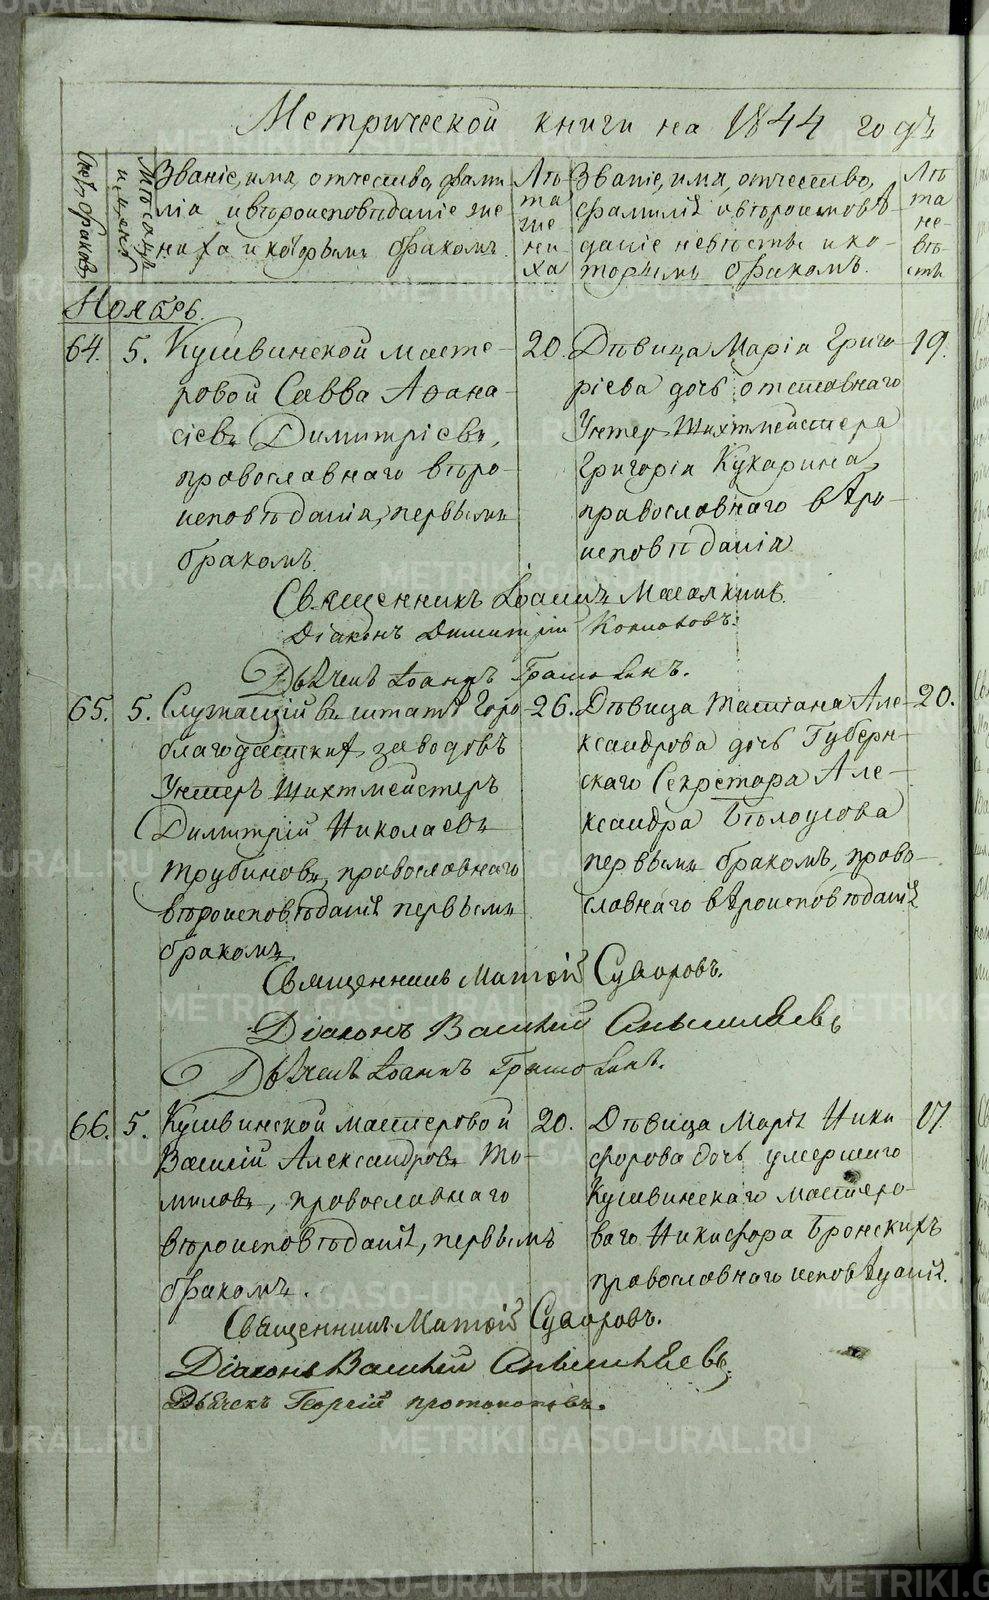 Метрической книги на 1844 годъ
Счетъ браковъ
Мѣсяцъ и день
Званіе, имя, отчество, фами-
лія и вѣроисповѣданіе же-
ниха и которымъ бракомъ.
Лѣ-
та
же
ни
ха
Званіе, имя, отчество,
фамилія и вѣроисповѣ
даніе невѣсты и ко-
торымъ бракомъ.
Лѣ
та
не-
вѣ
сты
Ноябрь.
64. 5. Кушвинской масте- 20.
ровой Савва Афана-
сіевъ Димитріевъ,
православнаго вѣро-
исповѣданія, первымъ
бракомъ.
Дѣвица Марія Григо- 19.
ріева дочь отставнаго
Унтер Шихтмейстера
Григорія Кухарина
православнаго вѣро-
исповѣданія
Священникъ Іоаннъ
Діаконъ Димитрій
Дьячекъ Іоаннъ
65. 5. Служащій въ штатѣ Горо- 26.
благодатскихъ заводовъ
Унтеръ Шихтмейстеръ
Димитрій Николаевъ
Трубиновъ, православнаго
вѣроисповѣданія первымъ
бракомъ.
Дѣвица Татіана Але- 20.
ксандрова дочь Губерн-
скаго Секретара Але-
ксандра Бѣлоусова
первымъ бракомъ, право-
славнаго вѣроисповѣданія
Священникъ Матѳій Суворовъ.
Діаконъ Василій
Дьячекъ Іоаннъ
66. 5. Кушвинской мастеровой 20.
Василій Александровъ То-
миловъ, православнаго
вѣроисповѣданія, первымъ
бракомъ.
Дѣвица Марія Ники 17.
форова дочь умершаго
Кушвинскаго мастеро-
ваго Никифора Бронскихъ
православнаго исповѣданія.
Священникъ Матѳій Суворовъ.
Діаконъ Василій
Дьячекъ Георгій Протопоповъ.
METRIKI.GASO-URAL.RU